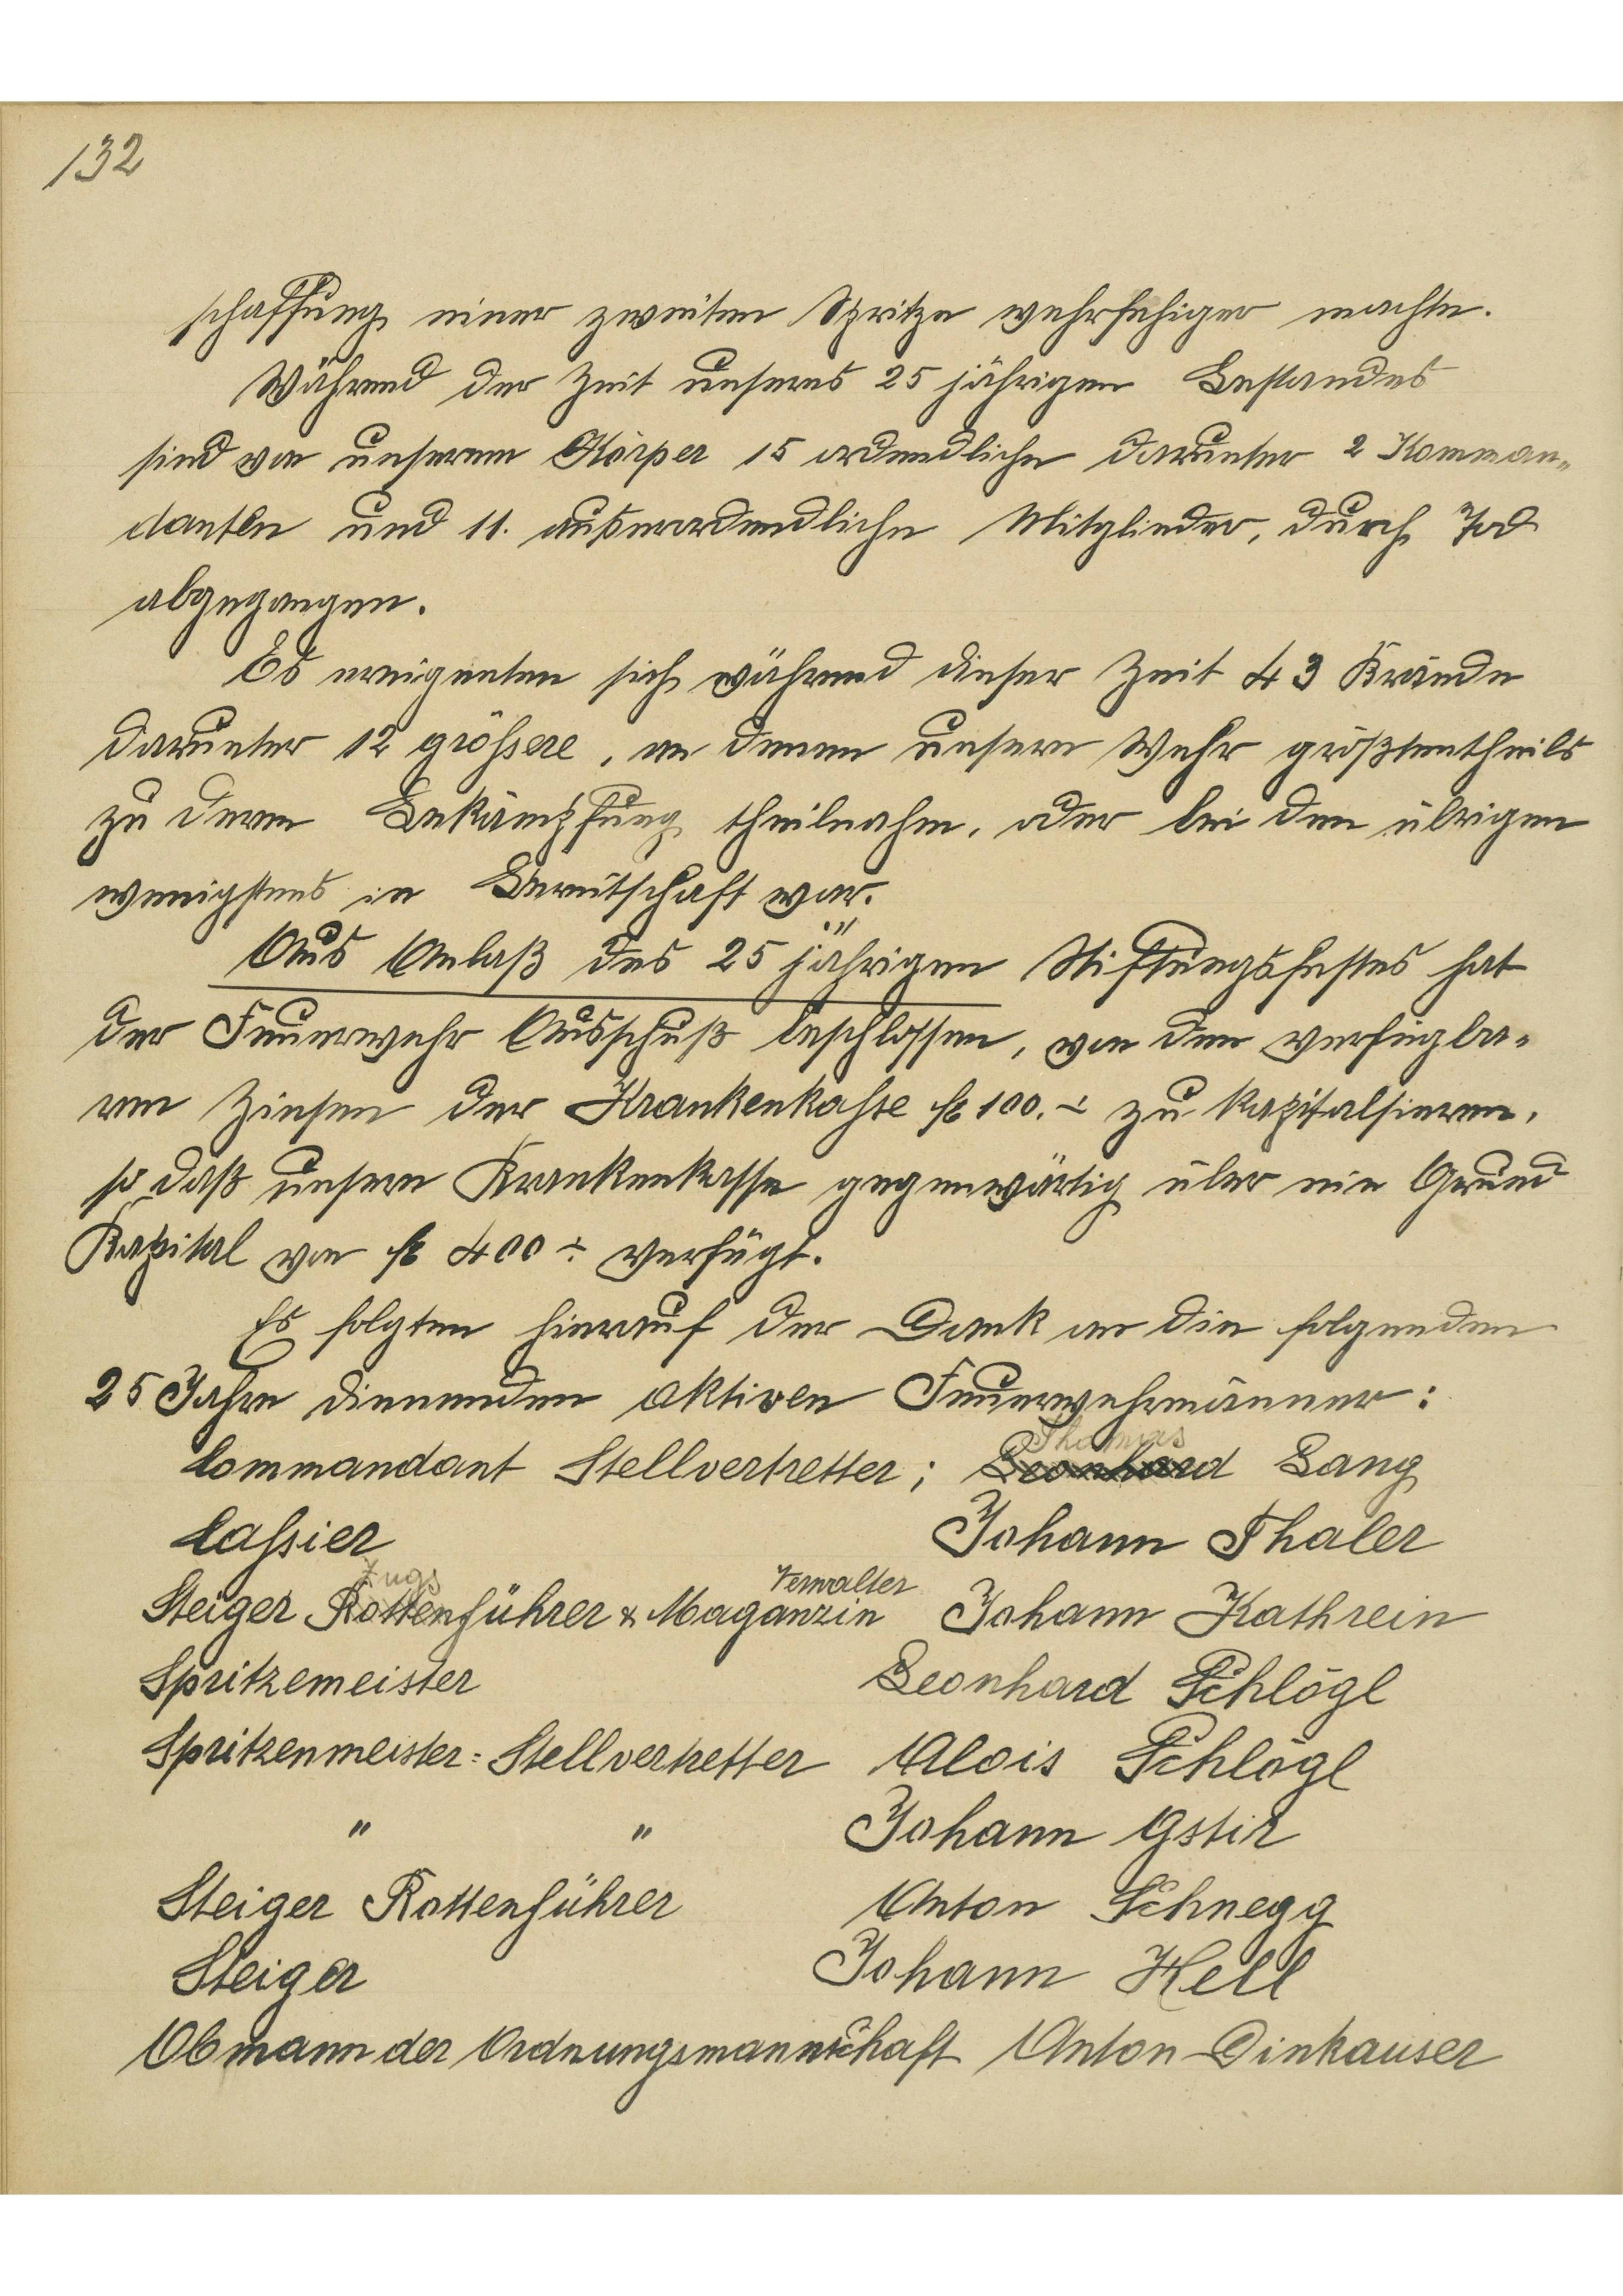 132
schaffung einer zweiten Spritze wehrfähiger machte.
Während der Zeit unseres 25 jährigen Bestandes
sind von unserem Körper 15 ordendliche darunter 2 Komman=
danten und 11. außerordendliche Mitglieder, durch Tod
abgegangen.
Es ereigneten sich während dieser Zeit 43 Brände
darunter 12 grössere, an denen unsere Wehr größtentheils
zu deren Bekämpfung theilnahm, oder bei den übrigen
wenigstens in Bereitschaft war.
Aus Anlaß des 25 jährigen Stiftungsfestes hat
der Feuerwehr Ausschuß beschlossen, von den verfügba=
ren Zinsen der Krankenkasse fl 100.- zu kapitalsieren,
so daß unsere Krankenkasse gegenwärtig über ein Grund
Kapital von fl 400 - verfügt.
Es folgten hierauf der Dank an die folgenden
25 Jahre dienenden aktiven Feuerwehrmänner:
Thomas
Commandant Stellvertretter; Leonhard Lang
Cassier Johann Thaler
Zugs Verwalter
Steiger Rottenführer & Maganzin Johann Kathrein
Spritzemeister Leonhard Schlögl
Spritzenmeister=Stellvertretter Alois Schlögl
" " Johann Gstir
Steiger Rottenführer Anton Schnegg
Steiger Johann Hell
Obmann der Ordnungsmannschaft Anton Dinkauser